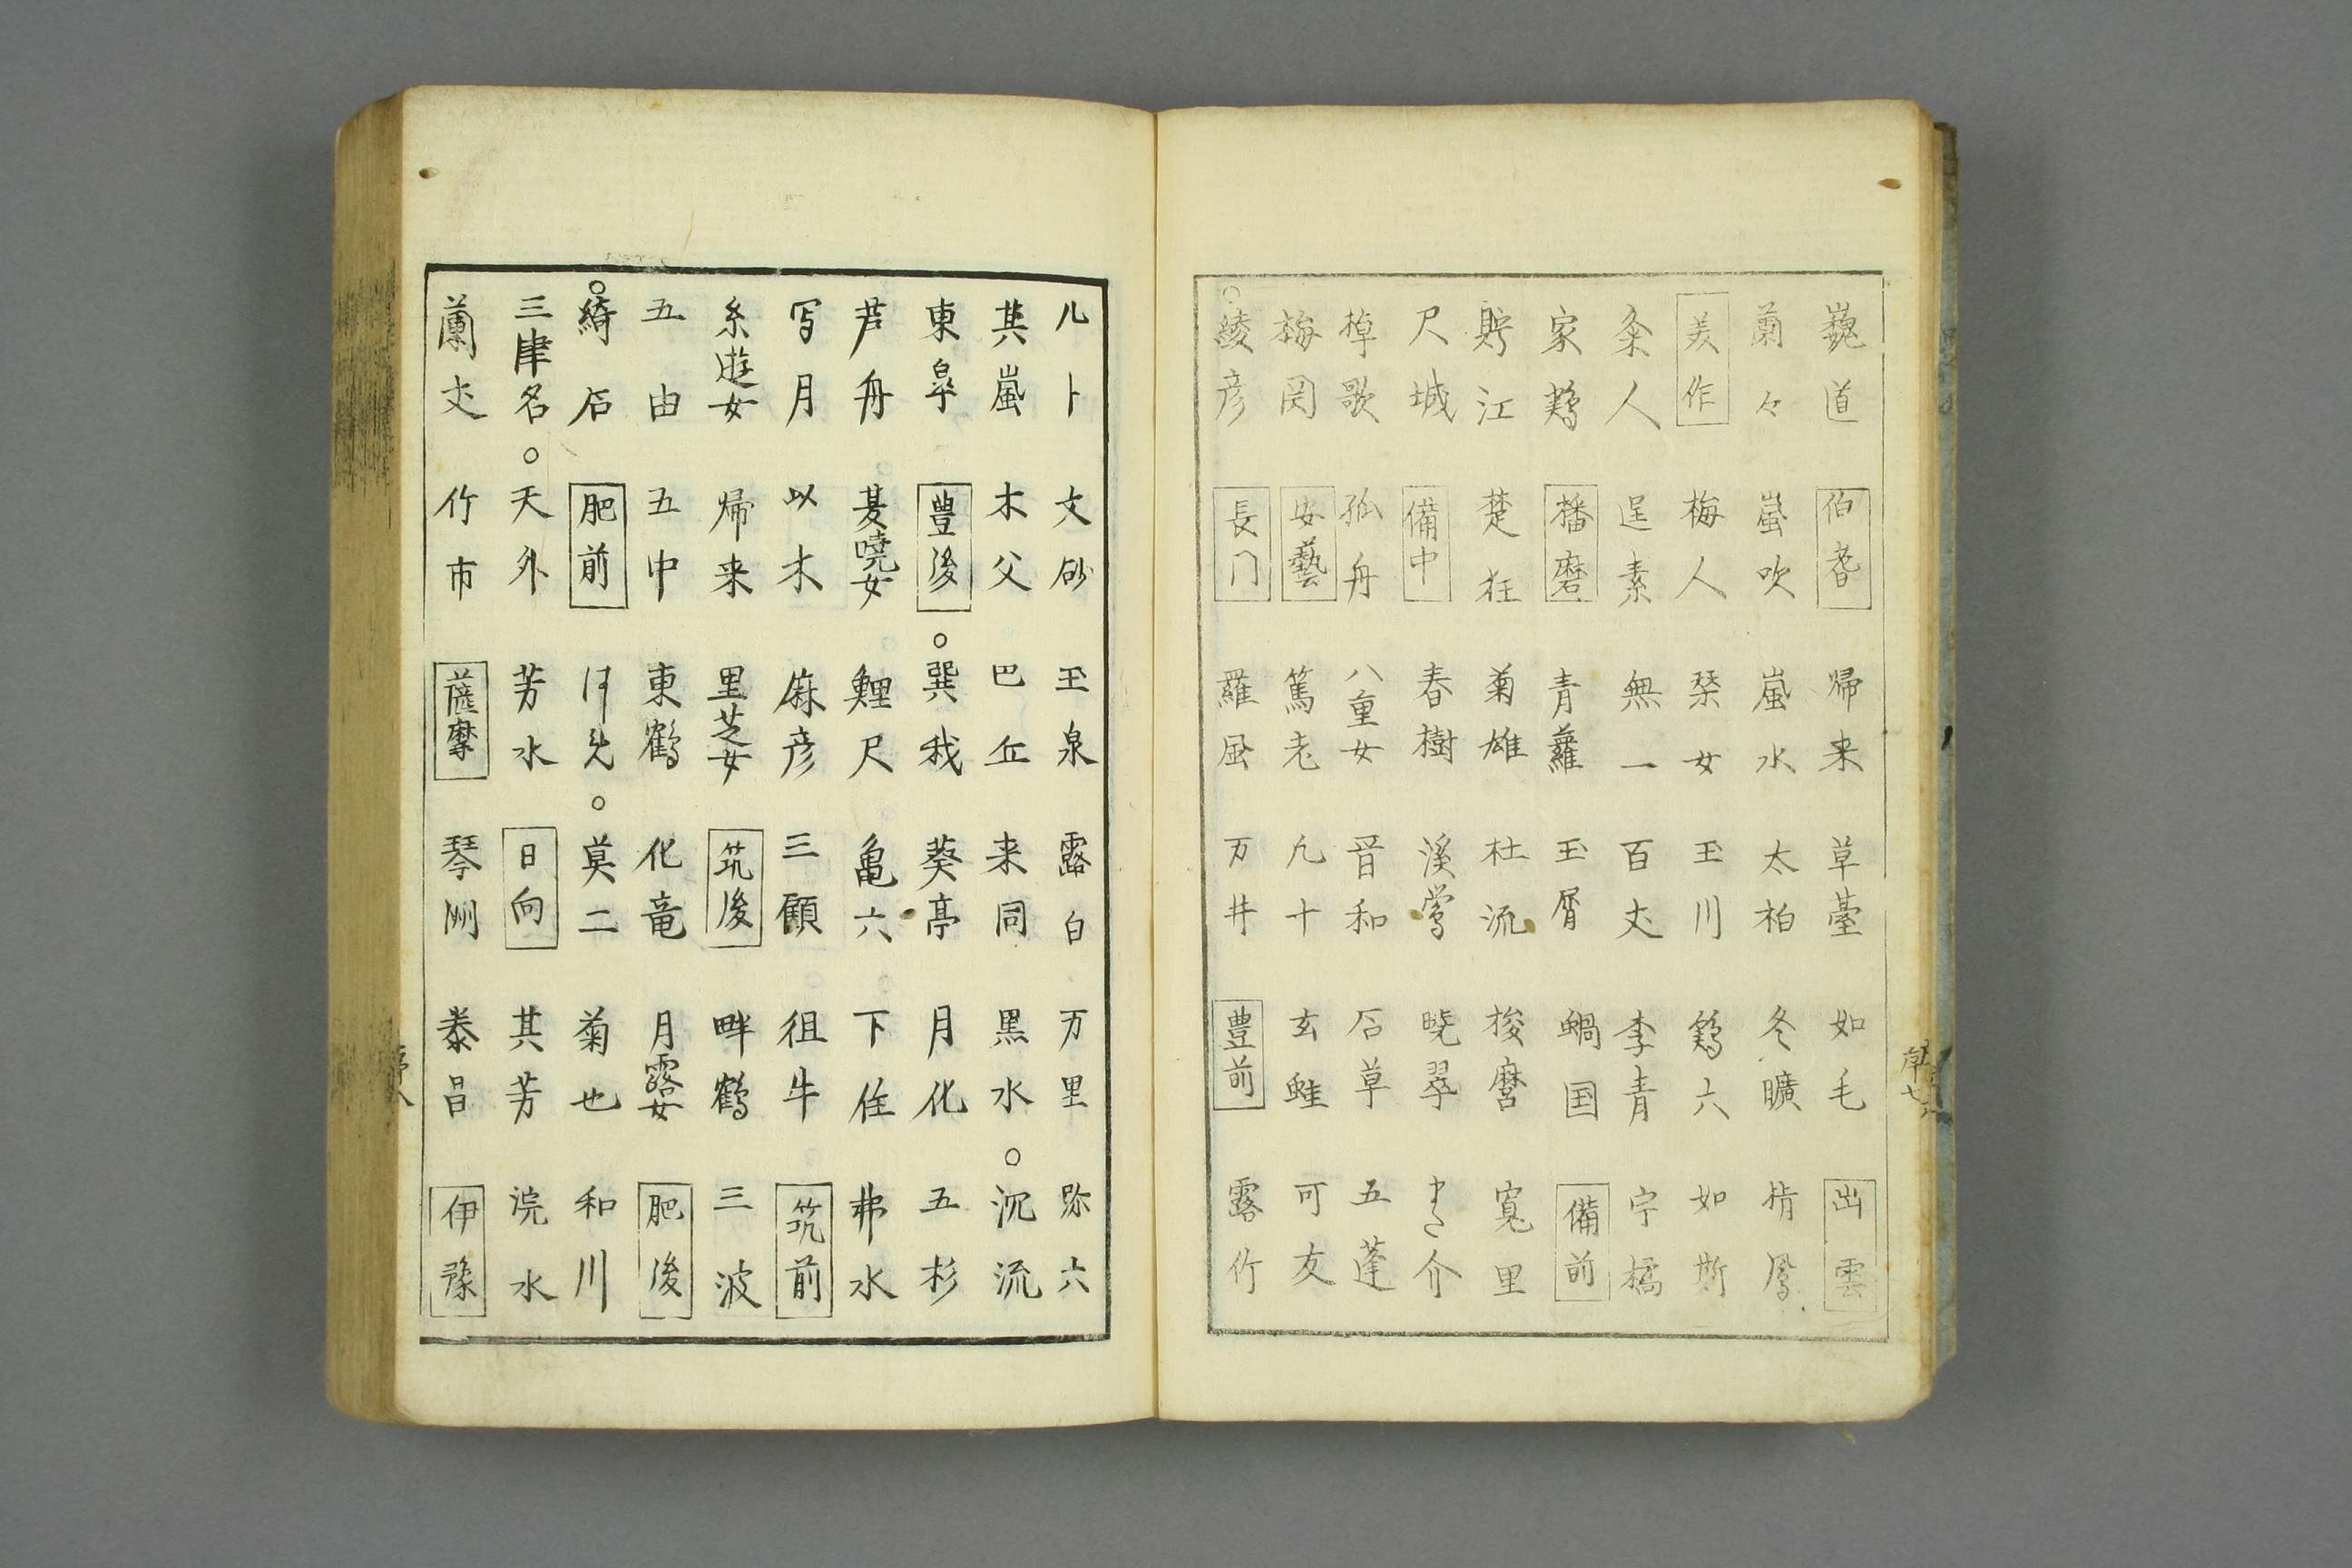 巍道 伯耆 帰来 草臺 如毛 出雲
蘭々 嵐吹 嵐水 太柏 冬曠 鳳
美作 梅人 琴女 玉川 鶴六 如斯
粂人 逞素 無一 百丈 李青 宁橘
家鶏 播磨 青蘿 玉屑 蝸国 備前
貯江 楚狂 菊雄 杜流 梭麿 寛里
尺城 備中 春樹 渓鶯 暁翠 介
棹歌 孤舟 八重女 音和 石草 五蓬
梅岡 安藝 篤老 凡十 玄蛙 可友
○綾彦 長门 羅風 万井 豊前 露竹
序七
儿卜 文砂 玉泉 露白 万里 弥六
其嵐 木父 巴丘 来同 黒水 ○沉流
東皐 豊後 ○巽我 葵亭 月化 五杉
芦舟 菱暁女 鯉尺 亀六 下住 弗水
写月 以木 麻彦 三顧 徂牛 筑前
糸遊女 帰来 里芝女 筑後 畔鶴 三波
五由 五中 東鶴 化竜 月露女 肥後
○綺石 肥前 ○莫二 菊也 和川
三津名 ○天外 芳水 日向 其芳 浣水
蘭丈 竹市 薩摩 琴洲 泰昌 伊豫